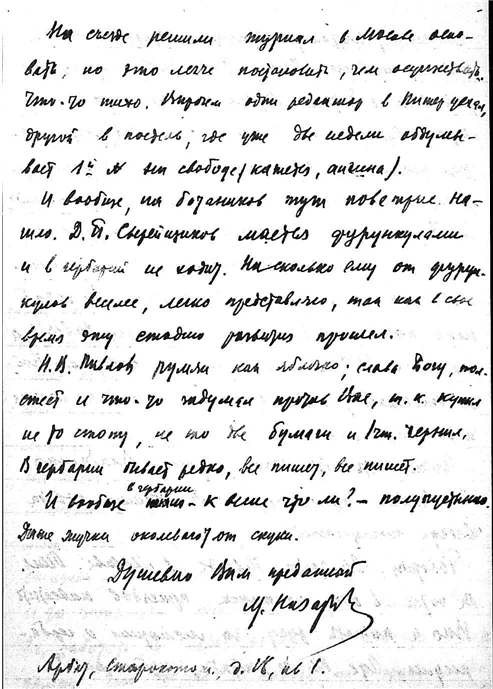 На съезде решили журнал в Москве осно-
вать, но это легче постановить, чем осуществить.
Что-то тихо. Впрочем один редактор в Питер уехал,
другой в постель, где уже две недели обдумы-
вает 1й № на свободе (кажется, ангина).
И вообще, на ботаников тут поветрие на-
шло. Д. П. Сырейщиков мается фурункулами
и в гербарий не ходит. На сколько ему от фурун-
кулов веселее, легко представляю, так как в свое
время эту стадию развития прошел.
Н. В. Павлов румян как яблочко; слава Богу, тол-
стеет и что-то задумал против Вас, т. к. купил
не то стопу, не то две бумаги и 1 чт. чернил.
В гербарии бывает редко, все пишет, все пишет.
И вообще в гербарии - к весне что ли? - полупустынно.
Даже жучки околевают от скуки.
Душевно Вам преданный
М. Назаров
Арбат, Староконюш., д. 18, кв 1.